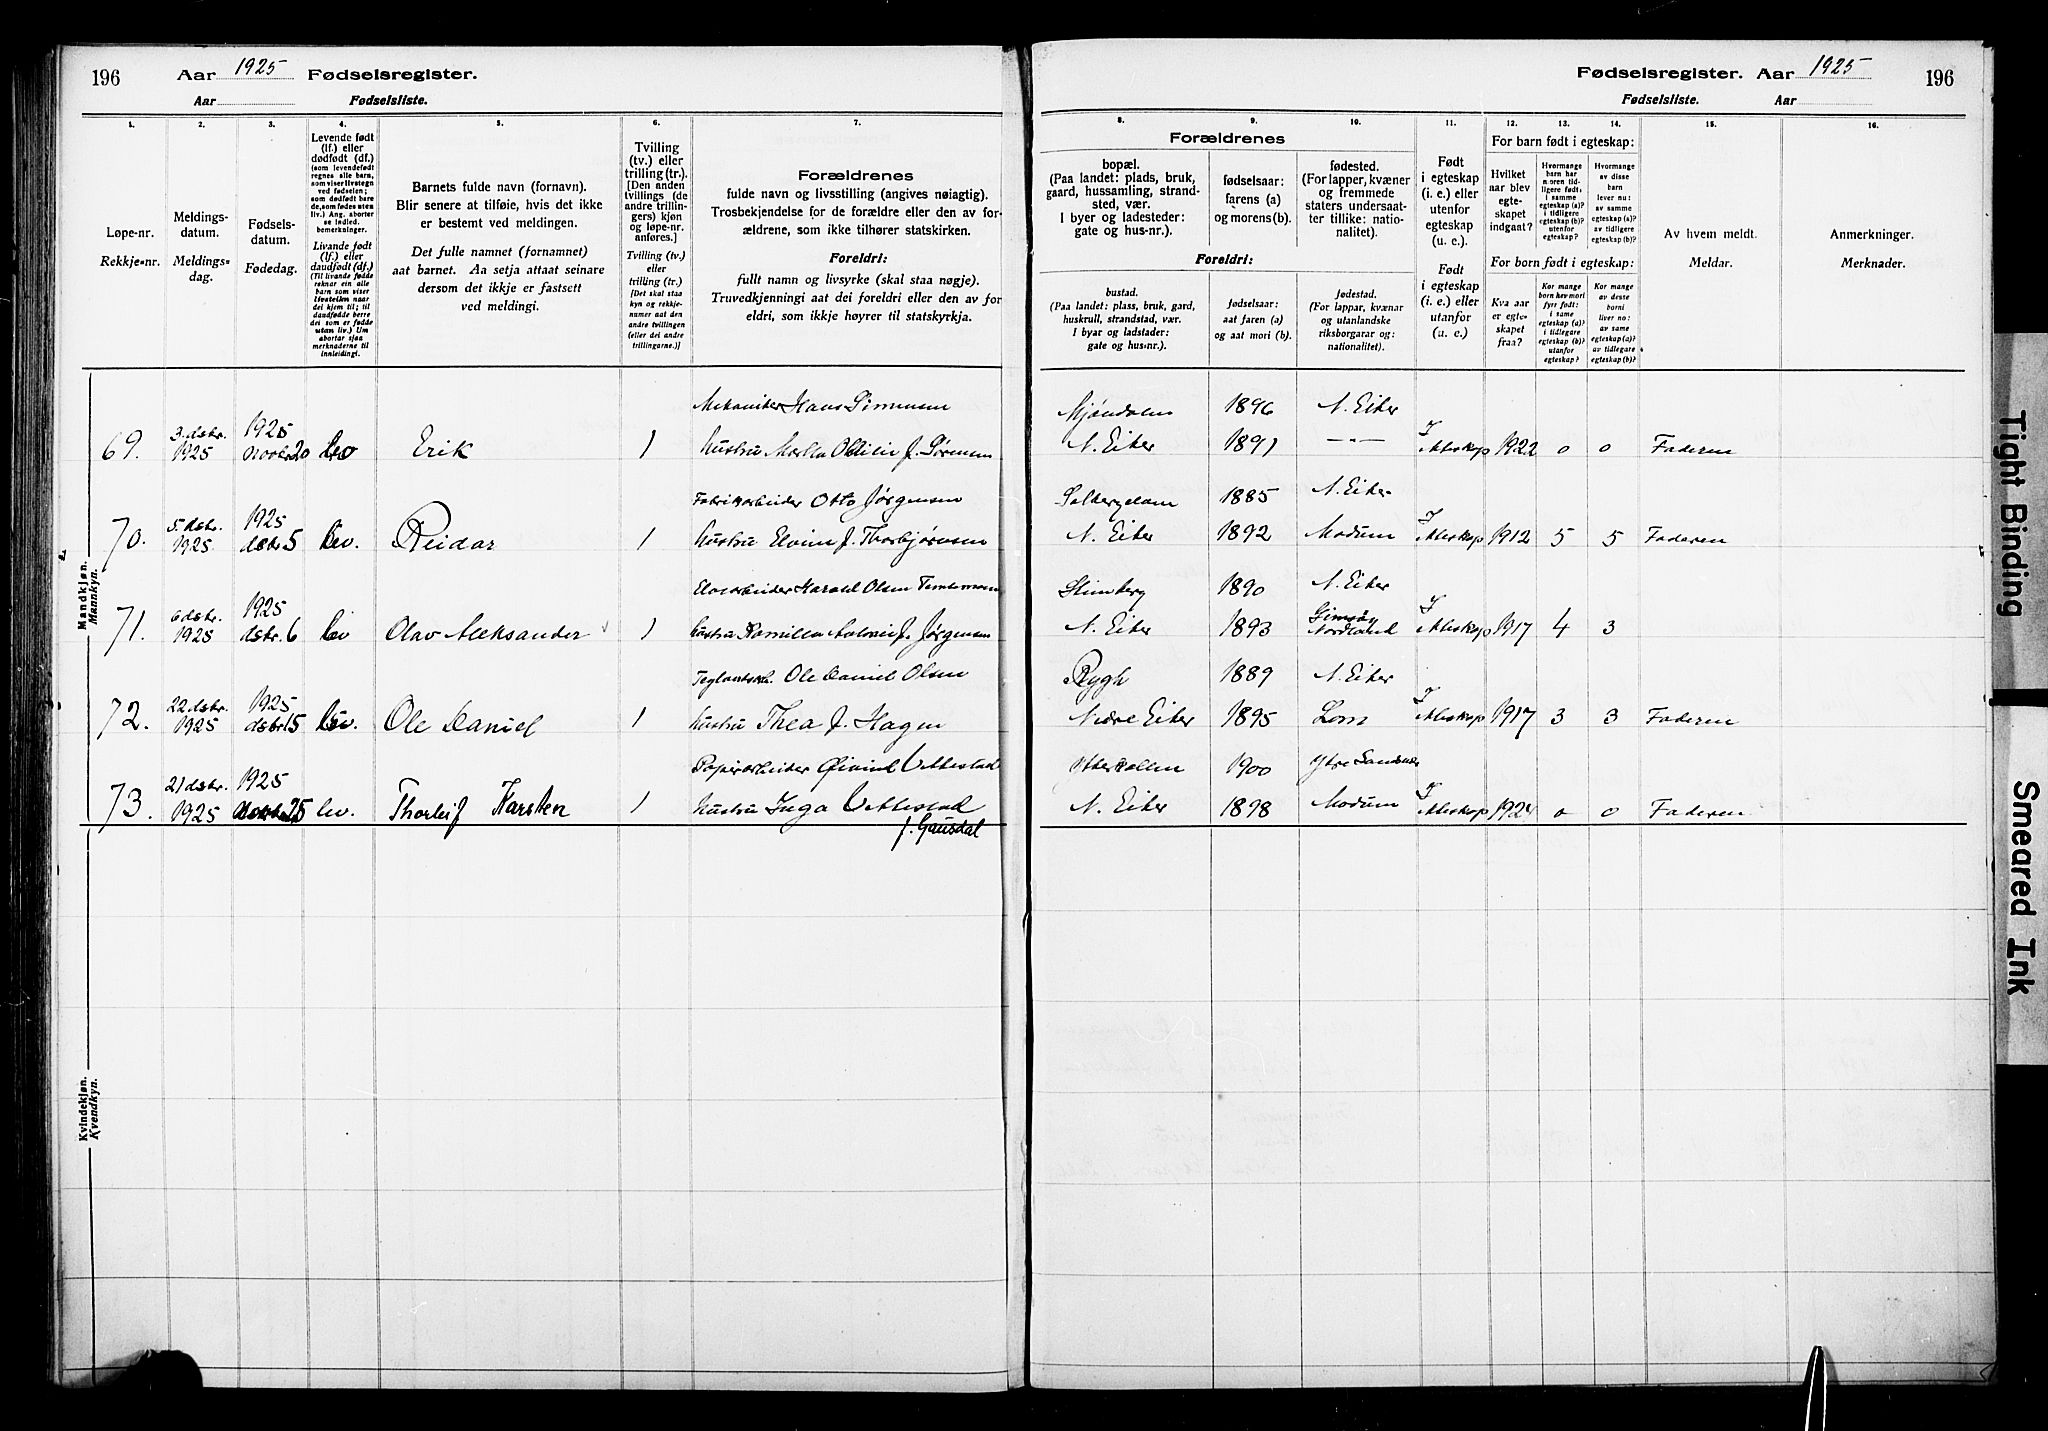 196 Aar 1925 Fødselsregister.
Aar Fødselsliste.
1. 2. 3. 4. 5. 6. 7.
Løpe-nr.
Rekkje-nr.
Meldings-
datum.
Meldings-
dag.
Fødsels-
datum.
Fødedag.
Levende født
(lf.) eller
dødfødt (df.)
(som levendefødt
regnes alle barn,
som viser livstegn
ved fødselen;
som dødfødt bare
de, som fødes uten
liv.) Ang. aborter
se indled.
bemerkninger.
Livande født
(lf.) eller
daudfødt (df.)
(Til livande fødde
reknar ein alle
born som viser
livsteikn naar
dei kjem til; til
daudfødde berre
dei som er fødde
utan liv.) Um
abortar sjaa
merknaderne til
innleidingi.
Barnets fulde navn (fornavn).
Blir senere at tilføie, hvis det ikke
er bestemt ved meldingen.
Det fulle namnet (fornamnet)
aat barnet. Aa setja attaat seinare
dersom det ikkje er fastsett
ved meldingi.
Tvilling
(tv.) eller
trilling (tr.).
[Den anden
tvillings (de
andre trillin-
gers) kjøn
og løpe-nr.
anføres.]
Tvilling (tv.)
eller
trilling (tr.)
[Det skal staa
kyn og rekkje-
numer aat den
andre tvillingen
(eller dei andre
trillingarne.)]
Forældrenes
fulde navn og livsstilling (angives nøiagtig).
Trosbekjendelse for de forældre eller den av for-
ældrene, som ikke tilhører statskirken.
Foreldri:
fullt namn og livsyrke (skal staa nøgje).
Truvedkjenningi aat dei foreldri eller den av for
eldri, som ikkje høyrer til statskyrkja.
Mandkjøn.
Mannkyn.
Kvindekjøn.
Kvendkyn.
Mekaniker Hans Sørensen
69. 3. dsbr. 1925 1925 novbr 20 lev Erik 1 hustru Martha f. Sørensen
Fabrikarbeider Otto Jørgensen
70. 5. dsbr. 1925 1925 dsbr 5 lev. Reidar 1 hustru f. Thorbjørnsen
Harald Olsen
71. 6 dsbr. 1925 1925 dsbr. 6 lev Olav Aleksander 1 hustru f. Jørgensen
Ole Daniel Olsen
72. 22 dsbr. 1925 1925 dsbr. 15 lev. Ole Daniel 1 hustru Thea f. Hagen
Papirarbeider Øivind Vettestad
73. 21 dsbr. 1925 1925 25 lev. Thorleif Karsten 1 hustru Inga Vettestad
f. Gausdal
Fødselsregister. Aar 1925 196
Fødselsliste. Aar
8. 9. 10. 11. 12. 13. 14. 15. 16.
Forældrenes
bopæl.
(Paa landet: plads, bruk,
gaard, hussamling, strand-
sted, vær.
I byer og ladesteder:
gate og hus-nr.).
fødselsaar:
farens (a)
og morens (b).
fødested.
(For lapper, kvæner
og fremmede
staters undersaat-
ter tillike: natio-
nalitet).
Foreldri:
bustad.
(Paa landet: plass, bruk, gard,
huskrull, strandstad, vær.
I byar og ladstader:
gate og hus-nr.).
fødselsaar:
aat faren (a)
og aat mori (b).
fødestad.
(For lappar, kvænar
og utanlandske
riksborgarar og:
nationalitet).
Født
i egteskap
(i. e.) eller
utenfor
egteskap
(u. e.).
Født
i egteskap
(i. e.) eller
utanfor
(u. e.)
For barn født i egteskap:
Hvilket
aar blev
egte-
skapet
indgaat?
Hvormange
barn har
moren tid-
ligere født:
i samme
egteskap (a)?
i tidligere
egteskap (b)?
utenfor
egteskap?
Hvormange
av disse
barn
lever nu:
av samme
egteskap (a)?
av tidligere
egteskap (b)?
For born født i egteskap:
Kva aar
er egte-
skapet
fraa?
Kor mange
born hev mori
fyrr født:
i same
egteskap (a)?
i tidlegare
egteskap (b)?
utanfor
egteskap?
Kor mange
av desse
borni
liver no:
av same
egteskap (a)?
av tidlegare
egteskap (b)?
Av hvem meldt.
Meldar.
Anmerkninger.
Merknader.
Mjøndalen 1896 N. Eiker
N. Eiker 1891 — " — I Ekteskap 1922 0 0 Faderen
Solbergelven 1885 N. Eiker
N. Eiker 1892 Modum I Ekteskap 1912 5 5 Faderen
Stenberg 1890 N. Eiker
N. Eiker 1893 Gimsøy Nordland I Ekteskap 1917 4 3
Rygh 1889 N. Eiker
Nedre Eiker 1895 Lom I Ekteskap 1917 3 3 Faderen
1900 Ytre Sandsvær
N. Eiker 1898 Modum I Ekteskap 1924 0 0 Faderen
Tight Binding
Smeared Ink